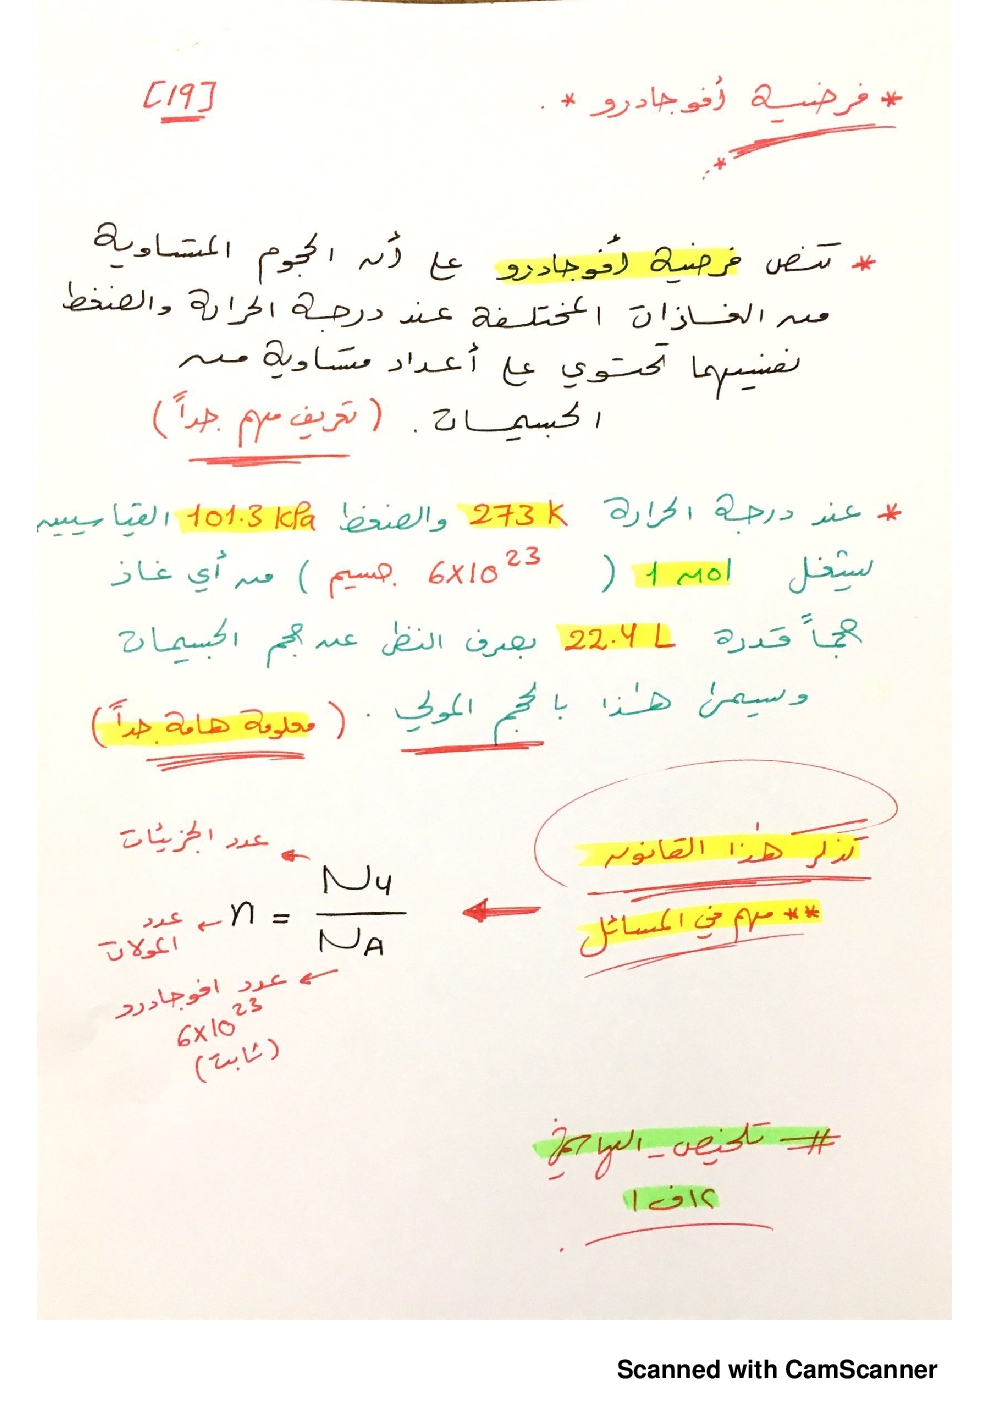 * فرضية أفوجادرو * .
[19]
* تنص فرضية أفوجادرو على أن الحجوم المتساوية
من الغازات المختلفة عند درجة الحرارة والضغط
نفسيهما تحتوي على أعداد متساوية من
الجسيمات . ( تعريف مهم جداً )
* عند درجة الحرارة 273 K والضغط 101.3 kPa القياسيين
يشغل 1 mol ( 6x10^23 جسيم ) من أي غاز
حجماً قدرة 22.4 L بصرف النظر عن حجم الجسيمات
وسيمى هذا بالحجم المولي . ( معلومة هامة جداً )
تذكر هذا القانون
** مهم في المسائل
عدد الجزيئات
n = Nu / NA
عدد المولات
عدد افوجادرو
6x10^23
(ثابت)
# تلخيص_البراجمي
١٢ف١
Scanned with CamScanner